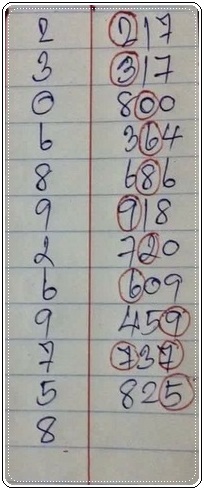 2 217
3 317
0 800
6 364
8 686
9 918
2 720
6 609
9 459
7 737
5 825
8